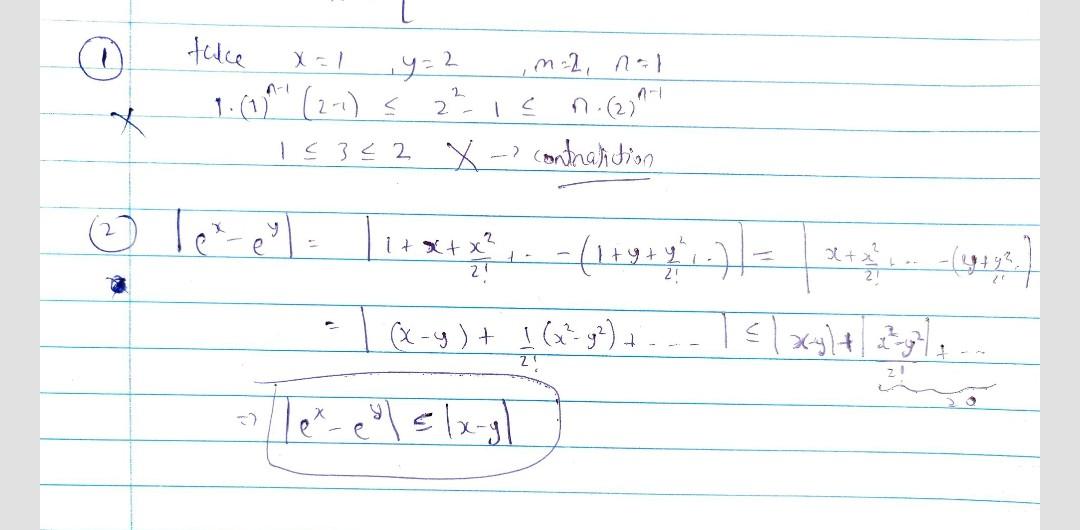 ① take x=1 , y=2 , m=2, n=1
X 1·(1)^{n-1} (2-1) ≤ 2^2 - 1 ≤ n·(2)^{n-1}
1 ≤ 3 ≤ 2 X → contradiction
② |e^x - e^y| = |1 + x + x^2/2! + .. - (1 + y + y^2/2! + ..)| = |x + x^2/2! + .. - (y + y^2/2! ..)|
= |(x-y) + 1/2! (x^2 - y^2) + ....| ≤ |x-y| + |x^2-y^2|/2! + ...
≥0
⇒ |e^x - e^y| ≤ |x-y|